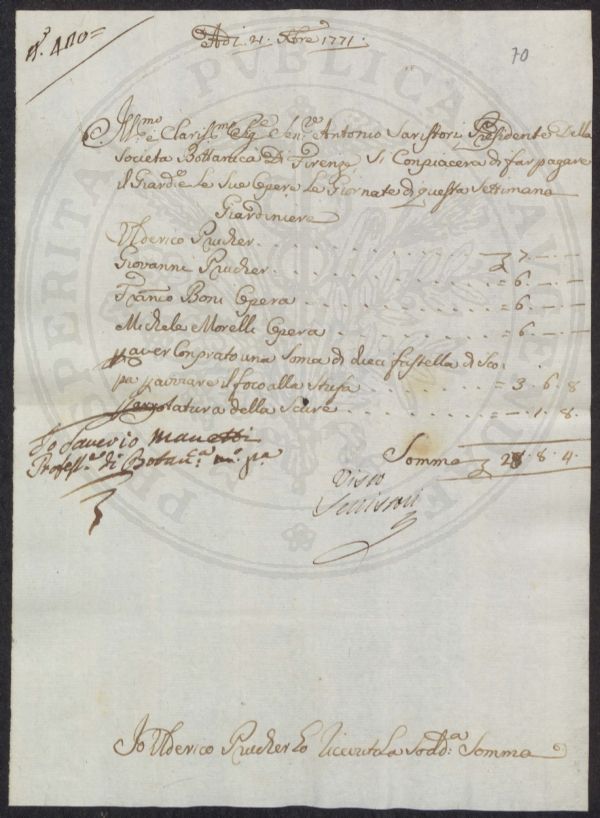 N.° 420=
Adi 21. Xbre 1771.
70
Ill.mo e Clariss.mo Sig.re Sen.re Antonio Saristori Presidente Della
Società Bottanica Di Firenze Si Conpiacera di far pagare
il Giard.e Le Sue Opere Le Giornate di questa Settimana
Giardiniere
Ulderico Prucher . . . 7. — . —
Giovanni Prucher . . . = 6. — . —
Franco Boni Opera . . . = 6. — . —
Michele Morelli Opera . . . = 6. — . —
p aver Conprato una Soma di dieci frstella di Sco:
pa p avviare il foco alla Stufa . . . = 3. 6. 8
p rotatura della Scure . . . = — . 1. 8.
Io Saverio Manetti
Profess.e di Botan.ca m.o p.a
Somma 28. 8. 4.
Visto
Serristori
Io Ulderico Prucher ho Riceuto La Sodd.a Somma
PROSPERITATI PUBLICAE AUGENDAE